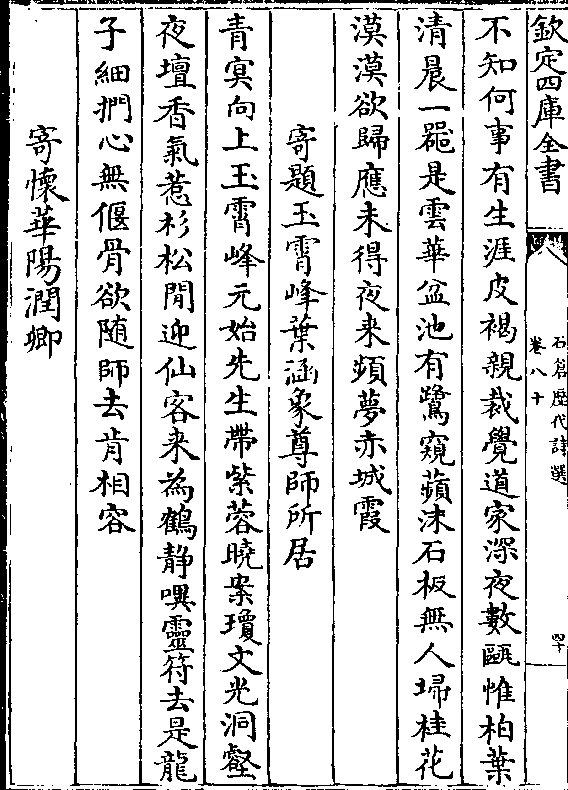 欽定四庫全書
石倉歷代詩選
卷八十
四十
不知何事有生涯皮褐親裁覺道家深夜數甌惟柏葉
清晨一器是雲華盆池有鷺窺蘋沫石板無人埽桂花
漠漠欲歸應未得夜来頻夢赤城霞
寄題玉霄峰葉涵象尊師所居
青㝠向上玉霄峰元始先生帶紫蓉曉案瓊文光洞壑
夜壇香氣惹杉松閒迎仙客来為鶴静噀靈符去是龍
子細捫心無偃骨欲随師去肯相容
寄懷華陽潤卿